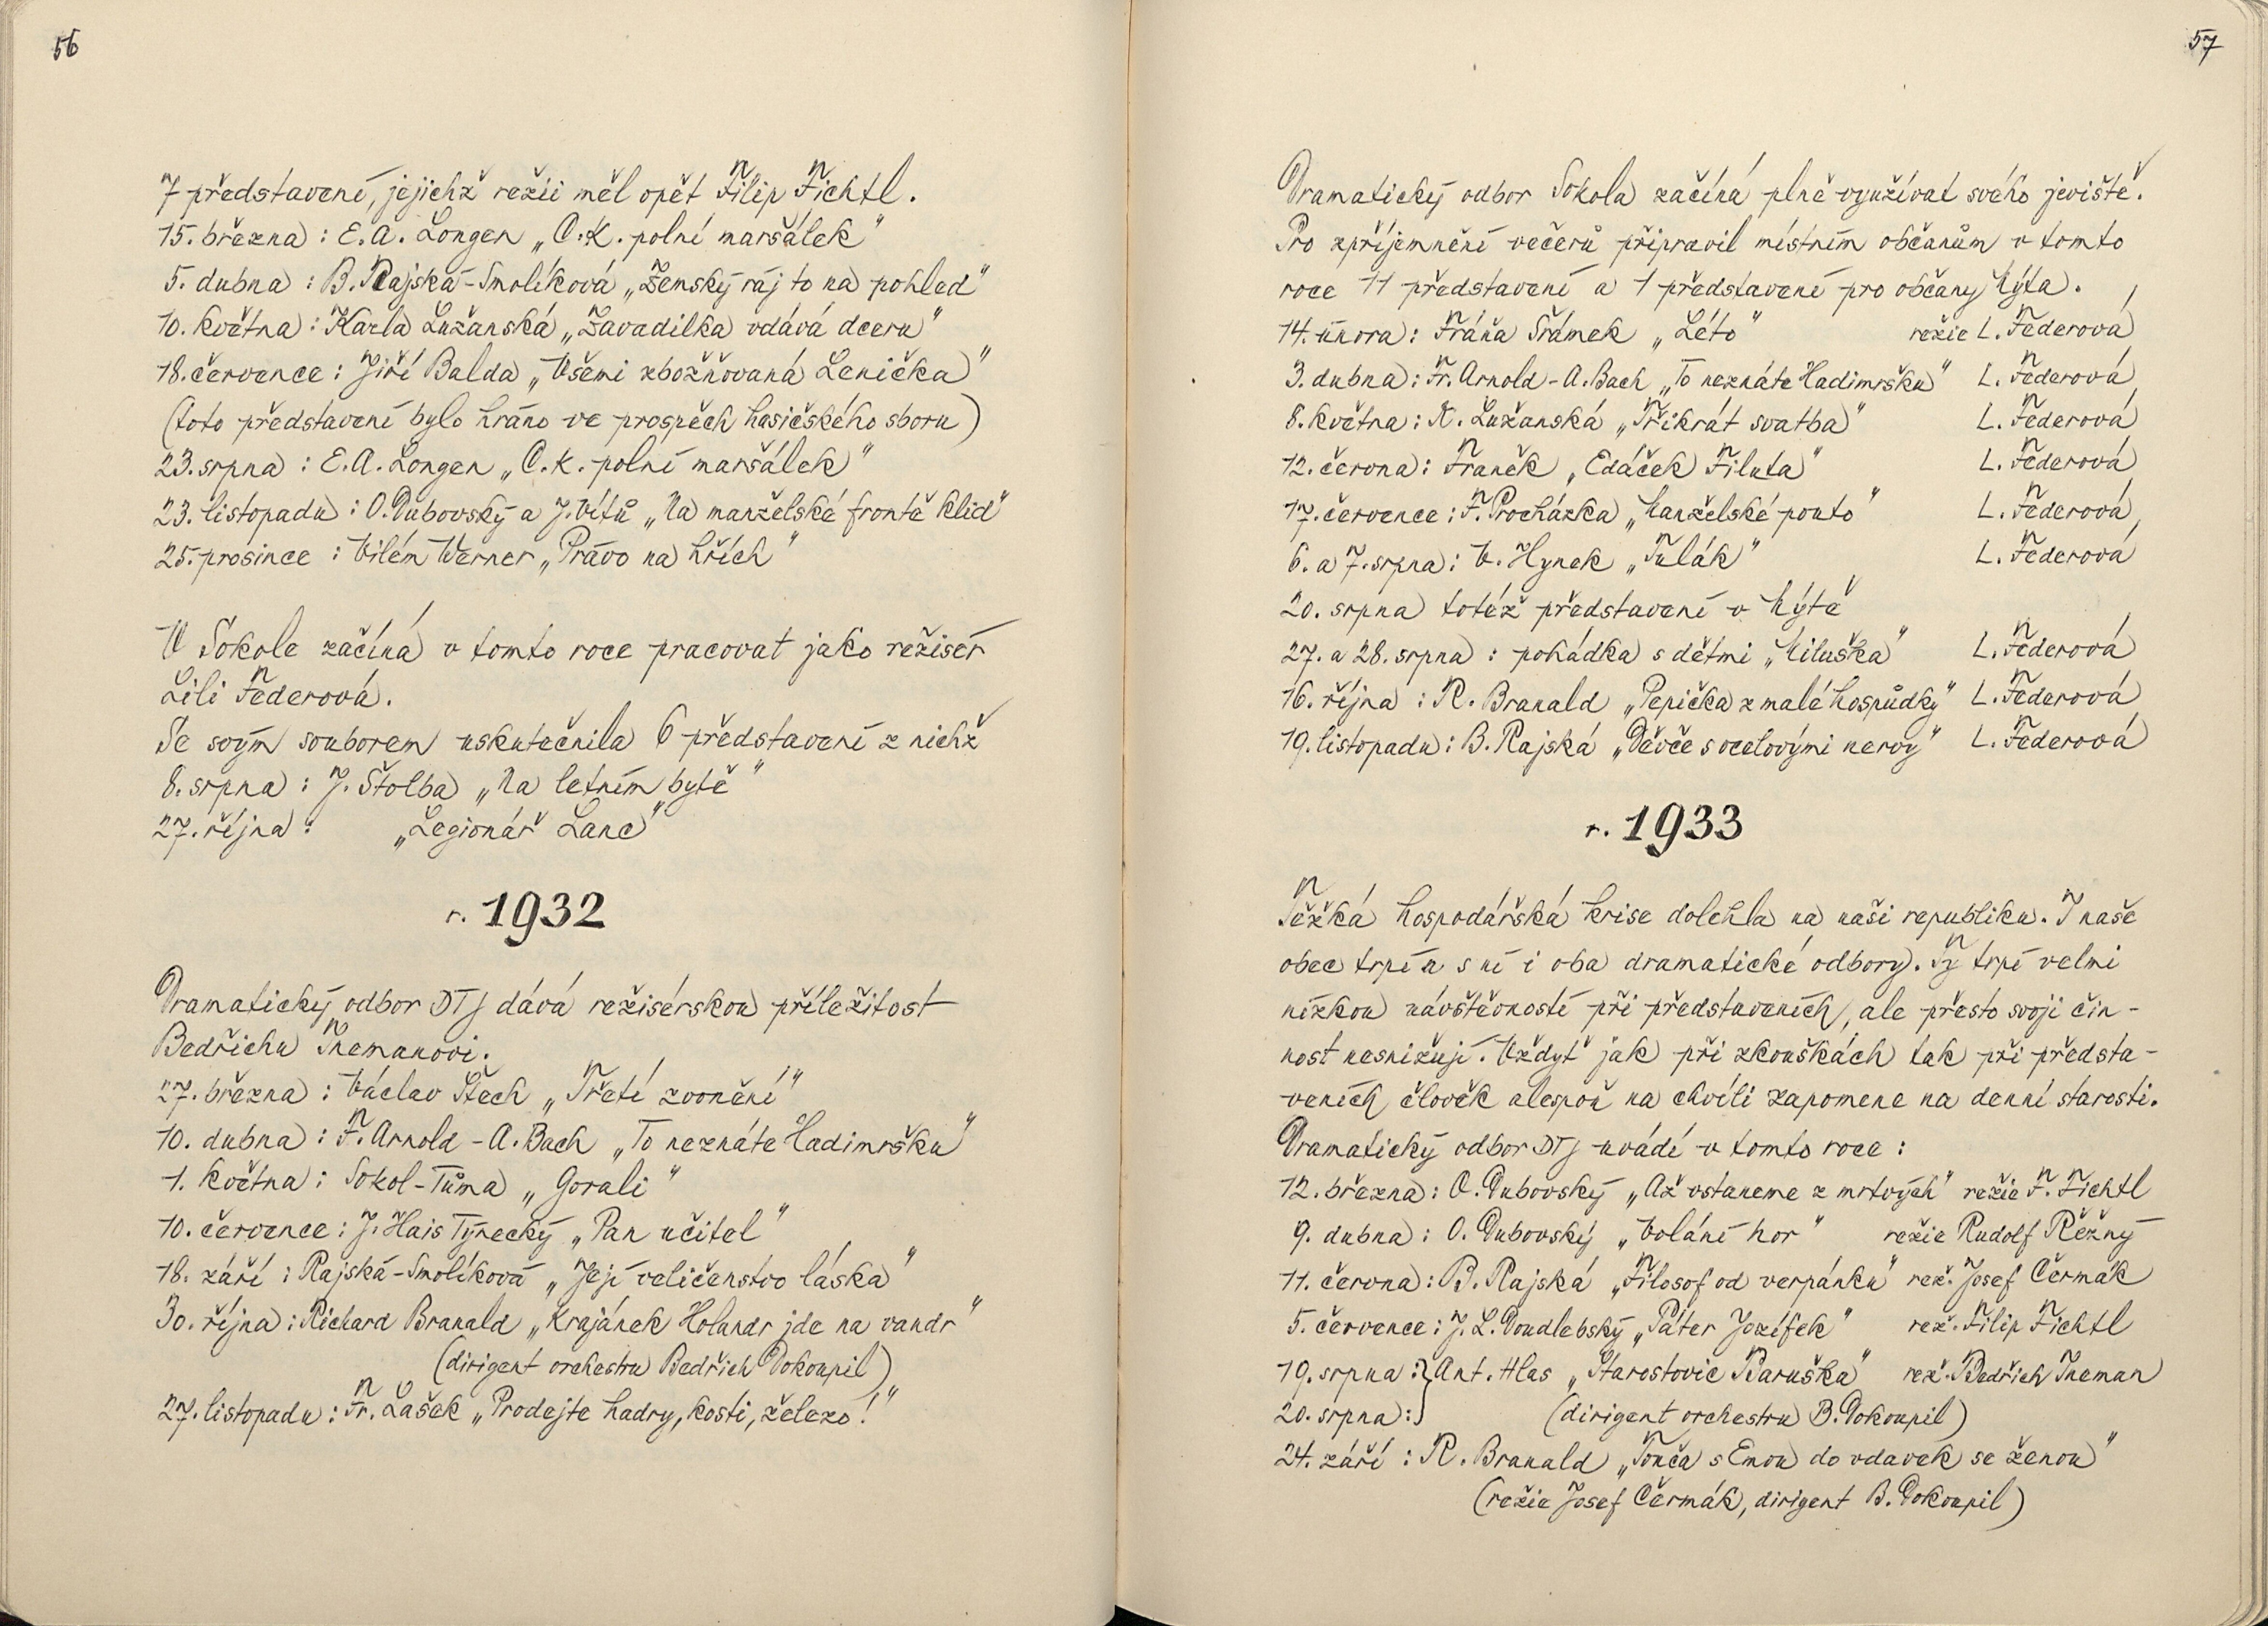 56
7 představení, jejichž režii měl opět Filip Fichtl.
15. března : E. A. Longen „C. K. polní maršálek"
5. dubna : B. Rajská-Smolíková „Zemský ráj to na pohled"
10. května : Karla Lužanská „Zavadilka vdává dceru"
18. července : Jiří Balda „Všemi zbožňovaná Lenička"
(toto představení bylo hráno ve prospěch hasičského sboru)
23. srpna : E. A. Longen „C. k. polní maršálek"
23. listopadu : O. Dubovský a J. Vítů „Na manželské frontě klid"
25. prosince : Vilém Werner „Právo na hřích"
V Sokole začíná v tomto roce pracovat jako režisér
Lili Federová.
Se svým souborem uskutečnila 6 představení z nichž
8. srpna : J. Štolba „Na letním bytě"
27. října : „Legionář Lanc"
r. 1932
Dramatický odbor DTJ dává režisérskou příležitost
Bedřichu Inemanovi.
27. března : Václav Štech „Třetí zvonění"
10. dubna : F. Arnold - A. Bach „To neznáte Hadimršku"
1. května : Sokol-Tůma „Gorali"
10. července : J. Hais Týnecký „Pan učitel"
18. září : Rajská-Smolíková „Její veličenstvo láska"
30. října : Richard Branald „Krajánek Holandr jde na vandr"
(dirigent orchestru Bedřich Dokoupil)
27. listopadu : Fr. Lašek „Prodejte hadry, kosti, železo!"
57
Dramatický odbor Sokola začíná plně využívat svého jeviště.
Pro zpříjemnění večerů připravil místním občanům v tomto
roce 11 představení a 1 představení pro občany Mýta.
14. února : Fráňa Šrámek „Léto" režie L. Federová
3. dubna : Fr. Arnold - A. Bach „To neznáte Hadimršku" L. Federová
8. května : K. Lužanská „Třikrát svatba" L. Federová
12. června : Franěk „Edáček Filuta" L. Federová
17. července : F. Procházka „Manželské pouto" L. Federová
6. a 7. srpna : V. Hynek „Tulák" L. Federová
20. srpna totéž představení v Mýtě
27. a 28. srpna : pohádka s dětmi „Miluška" L. Federová
16. října : R. Branald „Pepička z malé hospůdky" L. Federová
19. listopadu : B. Rajská „Děvče s ocelovými nervy" L. Federová
r. 1933
Těžká hospodářská krise dolehla na naši republiku. I naše
obec trpí a s ní i oba dramatické odbory. Ty trpí velmi
nízkou návštěvností při představeních, ale přesto svoji čin-
nost nesnižují. Vždyť jak při zkouškách tak při předsta-
veních člověk alespoň na chvíli zapomene na denní starosti.
Dramatický odbor DTJ uvádí v tomto roce :
12. března : O. Dubovský „Až vstaneme z mrtvých" režie F. Fichtl
9. dubna : O. Dubovský „Volání hor" režie Rudolf Řežný
11. června : B. Rajská „Filosof od verpánku" rež. Josef Čermák
5. července : J. L. Doudlebský „Páter Jozífek" rež. Filip Fichtl
19. srpna :} Ant. Hlas „Starostovic Baruška" rež. Bedřich Ineman
20. srpna :} (dirigent orchestru B. Dokoupil)
24. září : R. Branald „Tonča s Emou do vdavek se ženou"
(režie Josef Čermák, dirigent B. Dokoupil)